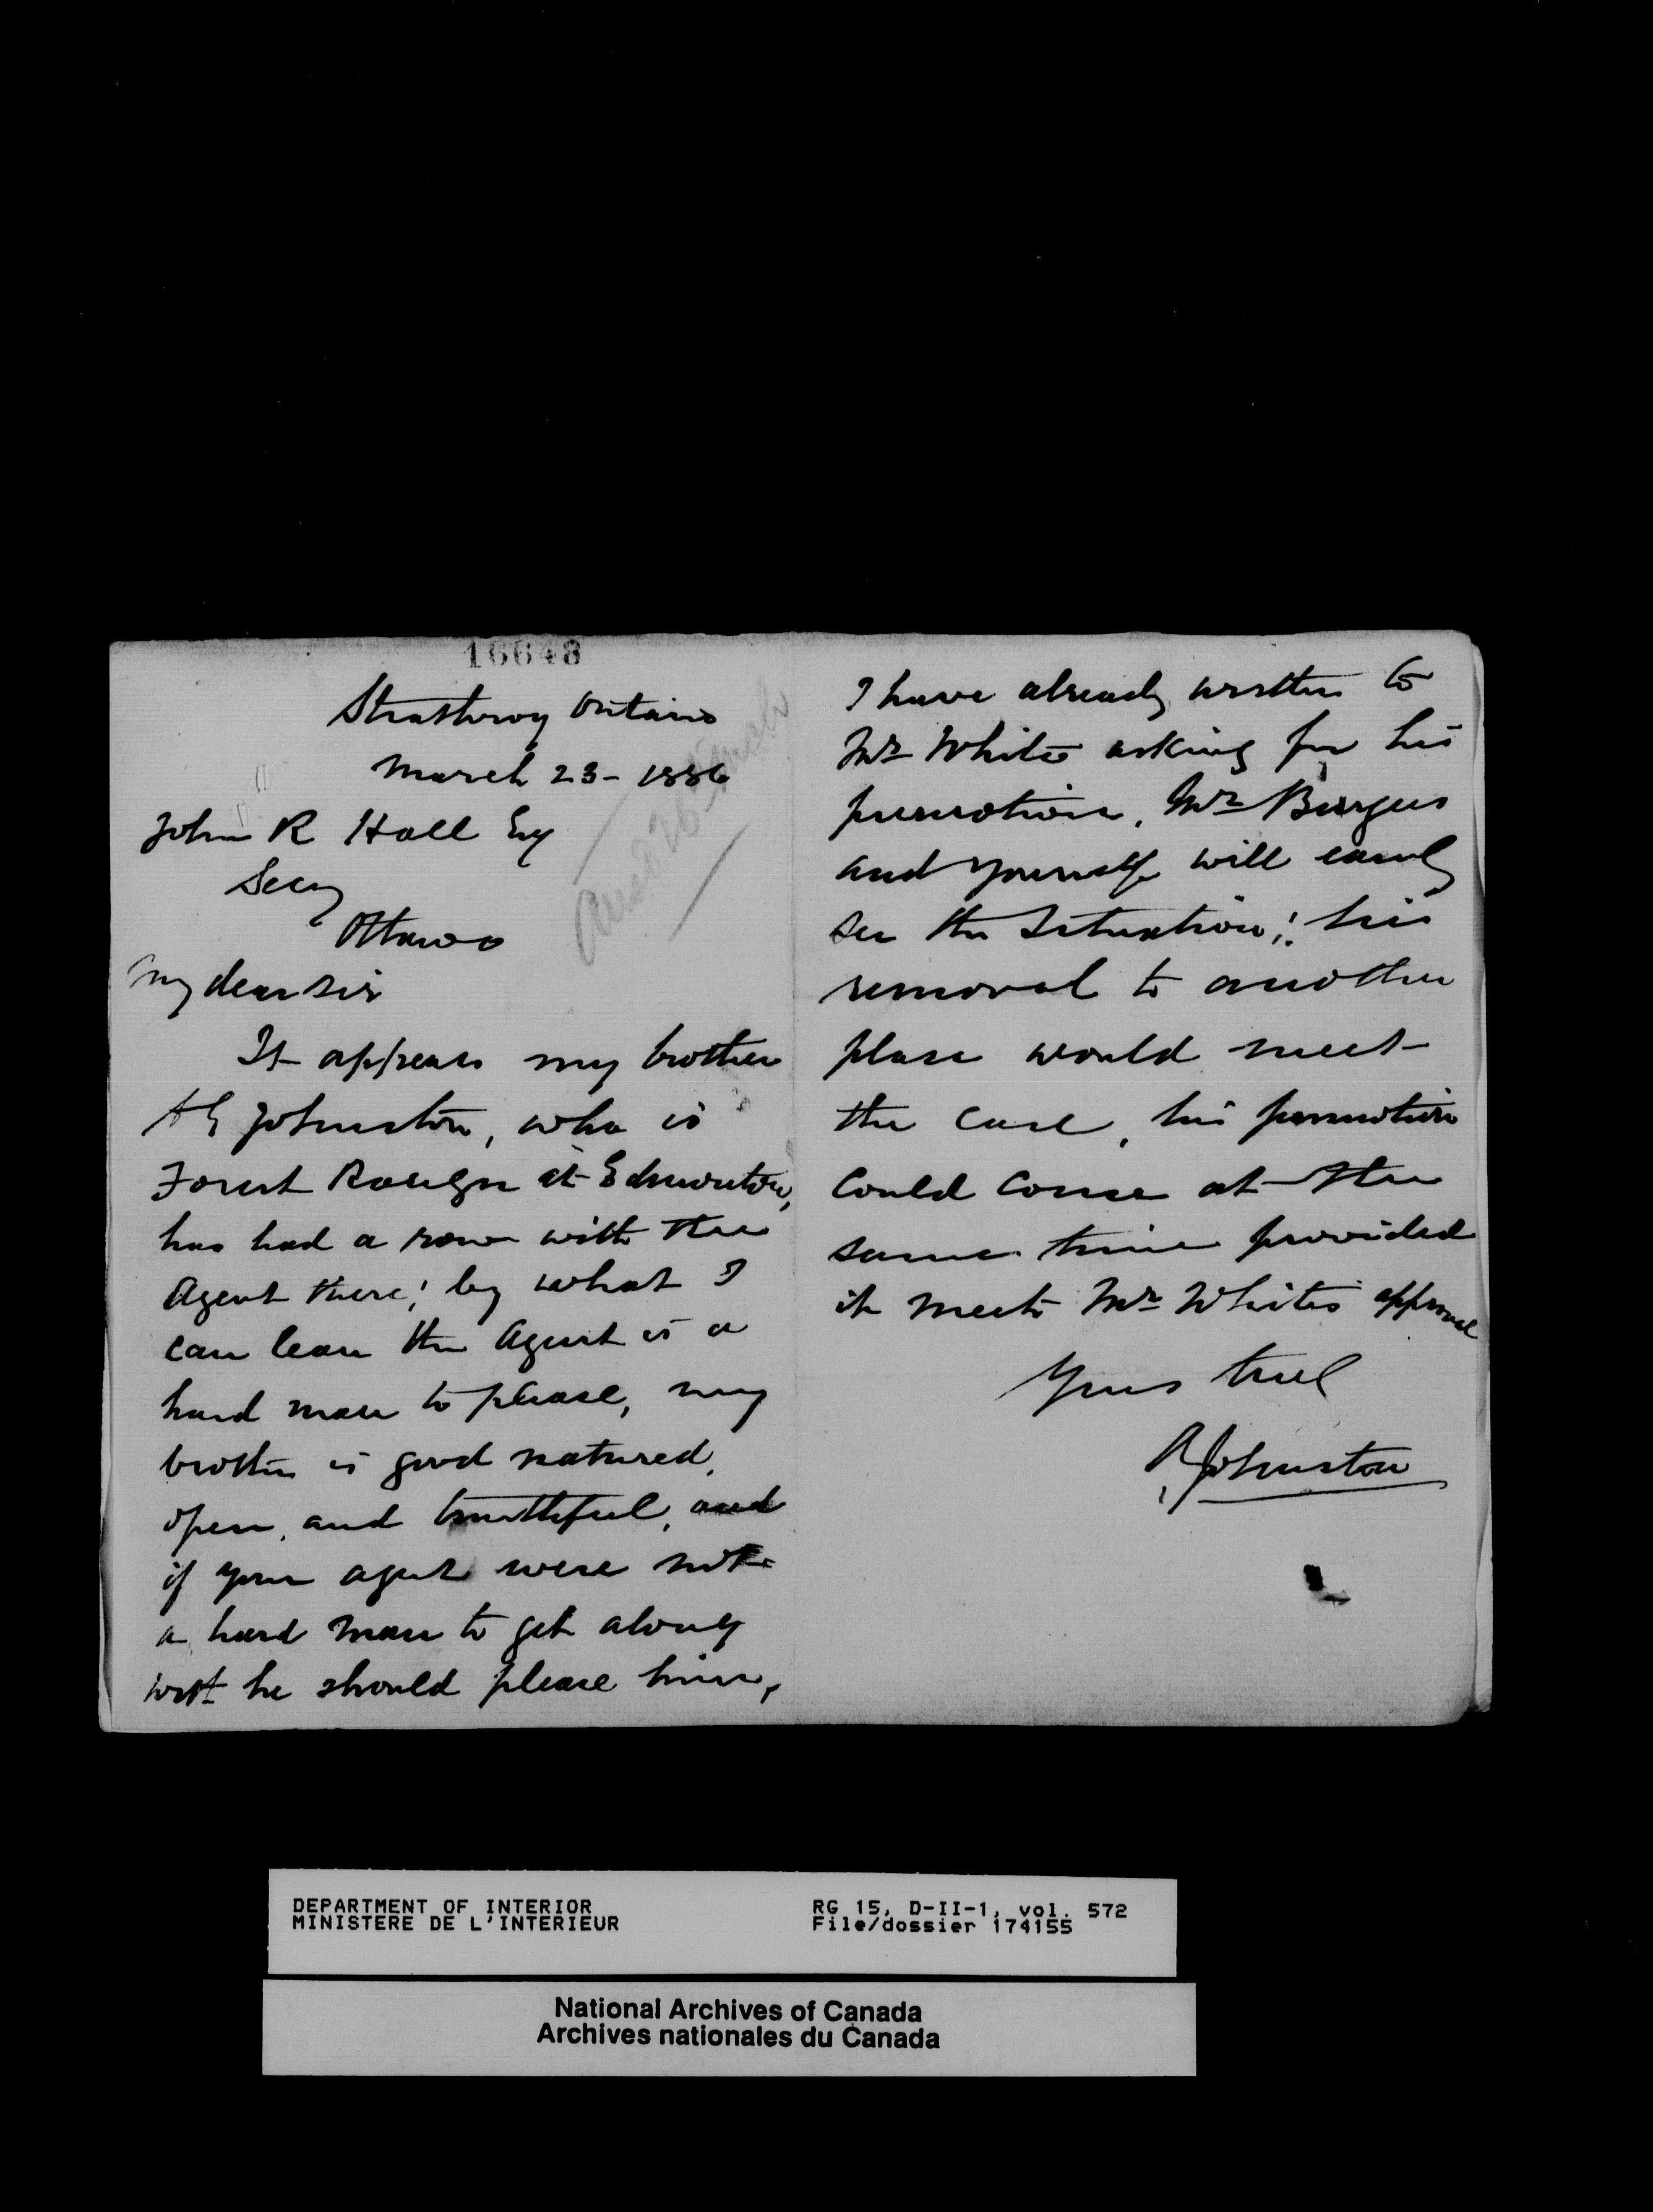 16648
Strathroy Ontario
March 23 - 1886
John R Hall Esq
Secy
Ottawa
My dear Sir
It appears my brother
Johnston, who is
Forest Ranger at Edmonton,
has had a row with the
Agent there; by what I
can learn the Agent is a
hard man to please, my
brother is good natured,
open, and truthful, and
if your agent were not
a hard man to get along
with he should please him,
Ansd 26 March
I have already written to
Mr White asking for his
promotion, Mr Burgess
and yourself will easily
see the situation; his
removal to another
place would meet
the case, his promotion
could come at the
same time provided
it meets Mr Whites approval
Yours truly
R Johnston
DEPARTMENT OF INTERIOR
MINISTERE DE L'INTERIEUR
RG 15, D-II-1, vol. 572
File/dossier 174155
National Archives of Canada
Archives nationales du Canada